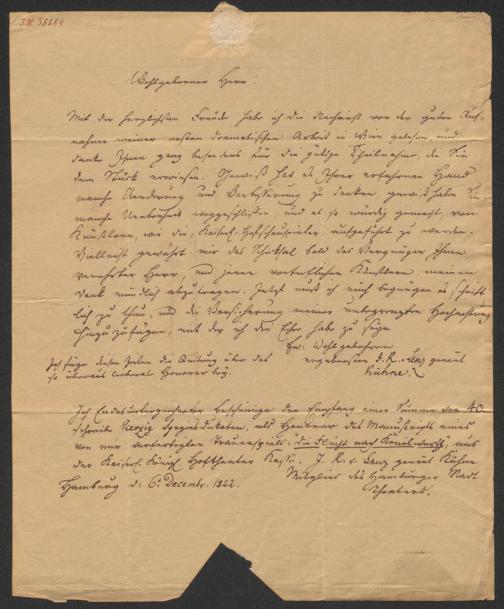 J.N. 36184
Wohlgeborner Herr!
Mit der herzlichsten Freude habe ich die Nachricht von der guten Auf-
nahme meiner ersten dramatischen Arbeit in Wien gelesen, und
danke Ihnen ganz besonders für die gütige Theilnahme, die Sie
dem Stück erwiesen. Gewiß hat es Ihrer erfahrenen Hand
manche Aenderung und Verbesserung zu danken, gewiß haben Sie
manche Unebenheit weggeschliffen, und es so würdig gemacht, von
Künstlern, wie die Kaiserl. Hofschauspieler, aufgeführt zu werden.
Vielleicht gewährt mir das Schicksal bald das Vergnügen Ihnen,
verehrter Herr, und jenen vortrefflichen Künstlern meinen
Dank mündlich abzutragen. Jetzt muß ich mich begnügen es schrift
lich zu thun, und die Versicherung meiner unbegrenzten Hochachtung
hinzuzufügen, mit der ich die Ehre habe zu seyn
Ew. Wohlgebohren
ergebenster J. R. v. Lenz genannt
Kühne.
Ich füge diesen Zeilen die Quittung über das
so überaus liberale Honorar bey.
Ich Endesunterzeichneter bescheinige den Empfang einer Summe von 40
schreibe Vierzig Species Dukaten, als Honorar des Manuscripts eines
von mir verfertigten Trauerspiels: die Flucht nach Kenilworth, aus
der Kaiserl. Königl. Hoftheater Kasse. J. R. v. Lenz genannt Kühne
Mitglied des Hamburger Stadt
Theaters.
Hamburg d. 6. Decembr. 1822.